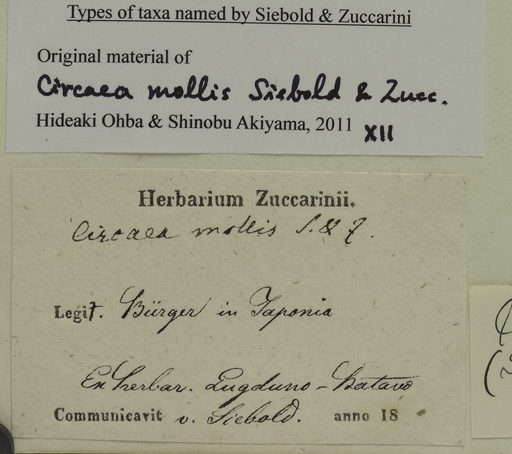 Types of taxa named by Siebold & Zuccarini
Original material of
Circaea mollis Siebold & Zucc.
Hideaki Ohba & Shinobu Akiyama, 2011 XII
Herbarium Zuccarinii.
Circaea mollis S. & Z.
Legit. Bürger in Japonia
Ex herbar. Lugduno-Batavo
Communicavit v. Siebold. anno 18